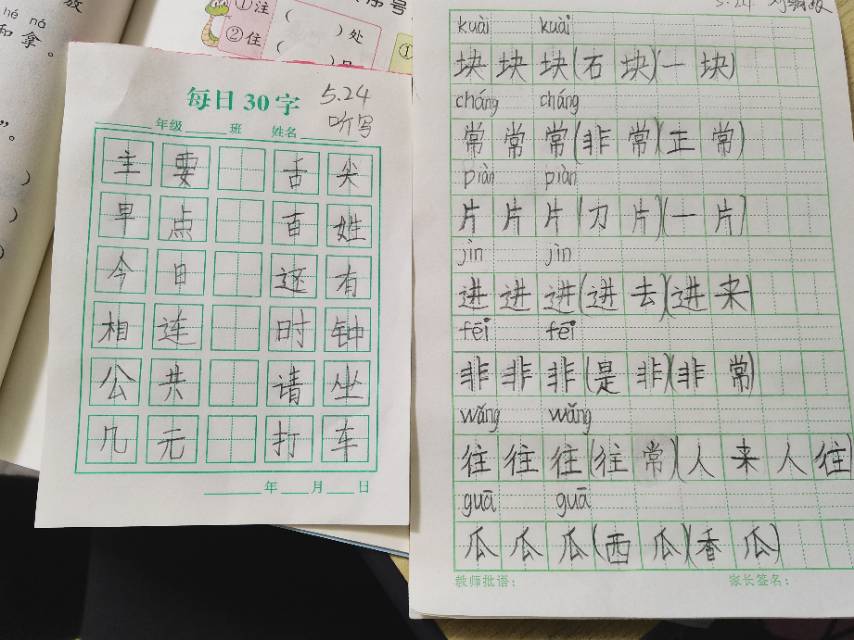 放
hé ná
和拿。
”。
)
)
①注( )处
②住( )
号
①
每日30字
5.24
听写
年级 班 姓名
主要 舌尖
早点 百姓
今日 这有
相连 时钟
公共 请坐
几元 打车
年 月 日
5.24
kuài kuài
块块块(石块)(一块)
cháng cháng
常常常(非常)(正常)
piàn piàn
片片片(刀片)(一片)
jìn jìn
进进进(进去)(进来)
fēi fēi
非非非(是非)(非常)
wǎng wǎng
往往往(往常)(人来人往)
guā guā
瓜瓜瓜(西瓜)(香瓜)
教师批语： 家长签名：